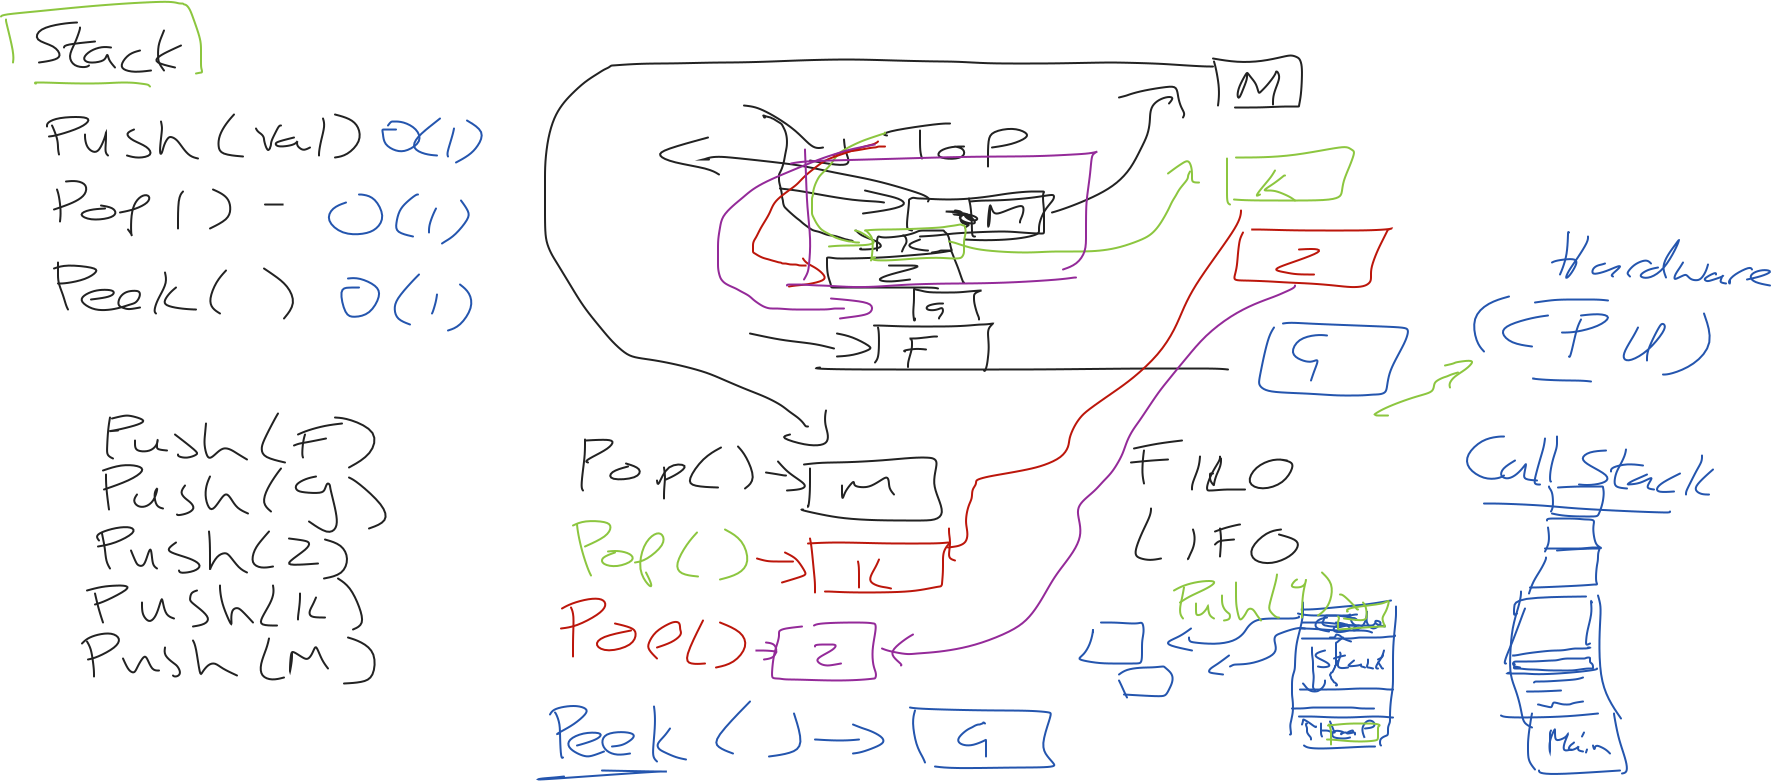 Stack
Push(val) O(1)
Pop() - O(1)
Peek() O(1)
Push(F)
Push(G)
Push(Z)
Push(K)
Push(M)
Top
M
K
Z
G
F
M
K
Z
G
Pop() → M
Pop() → K
Pop() → Z
Peek() → G
FILO
LIFO
Push(9)
Stack
Heap
Hardware
(CPU)
Call Stack
Main